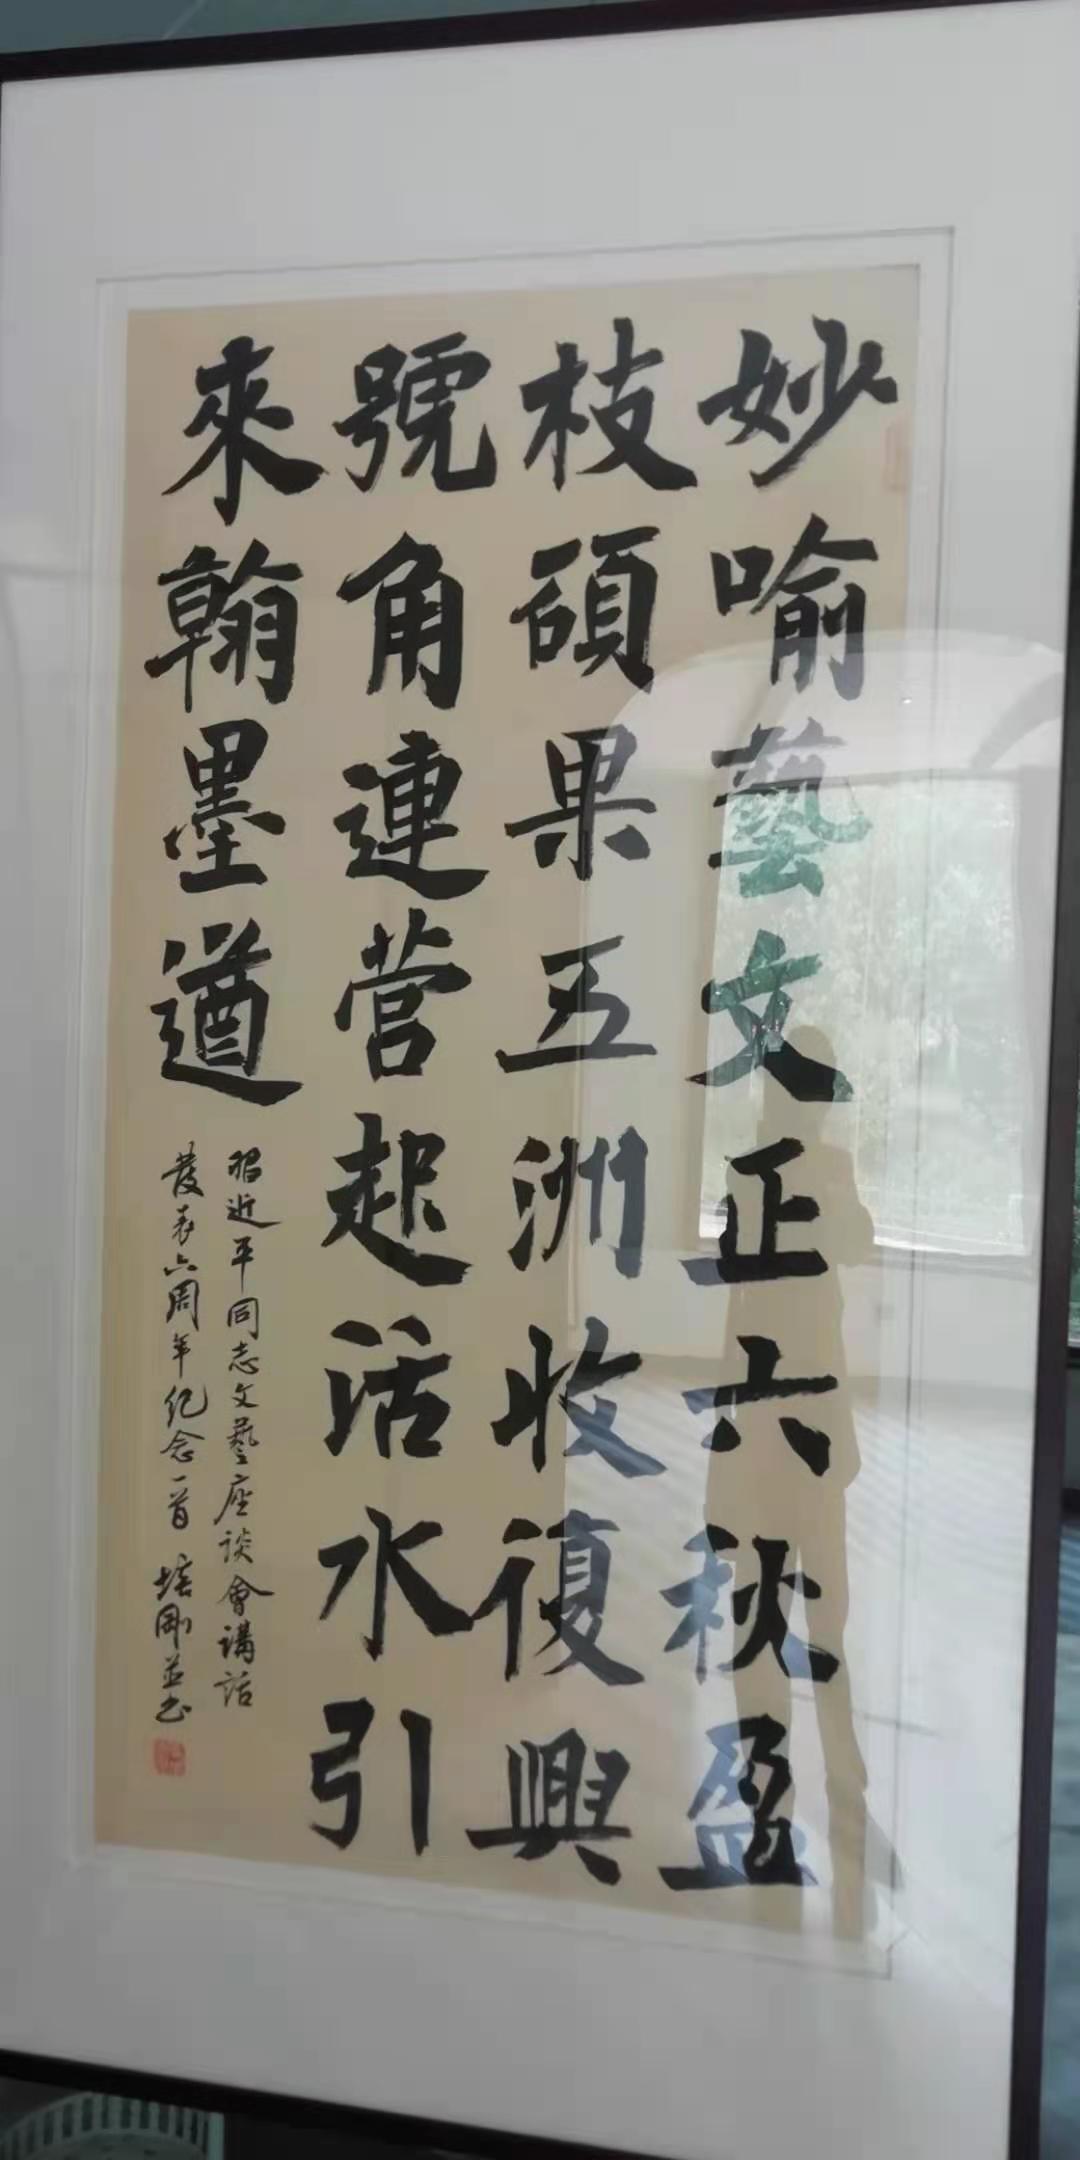 妙喻藝文正六秋盈
枝碩果五洲收復興
號角連营起活水引
來翰墨遒
習近平同志文藝座談會講話
發表六周年纪念一首 培剛並书